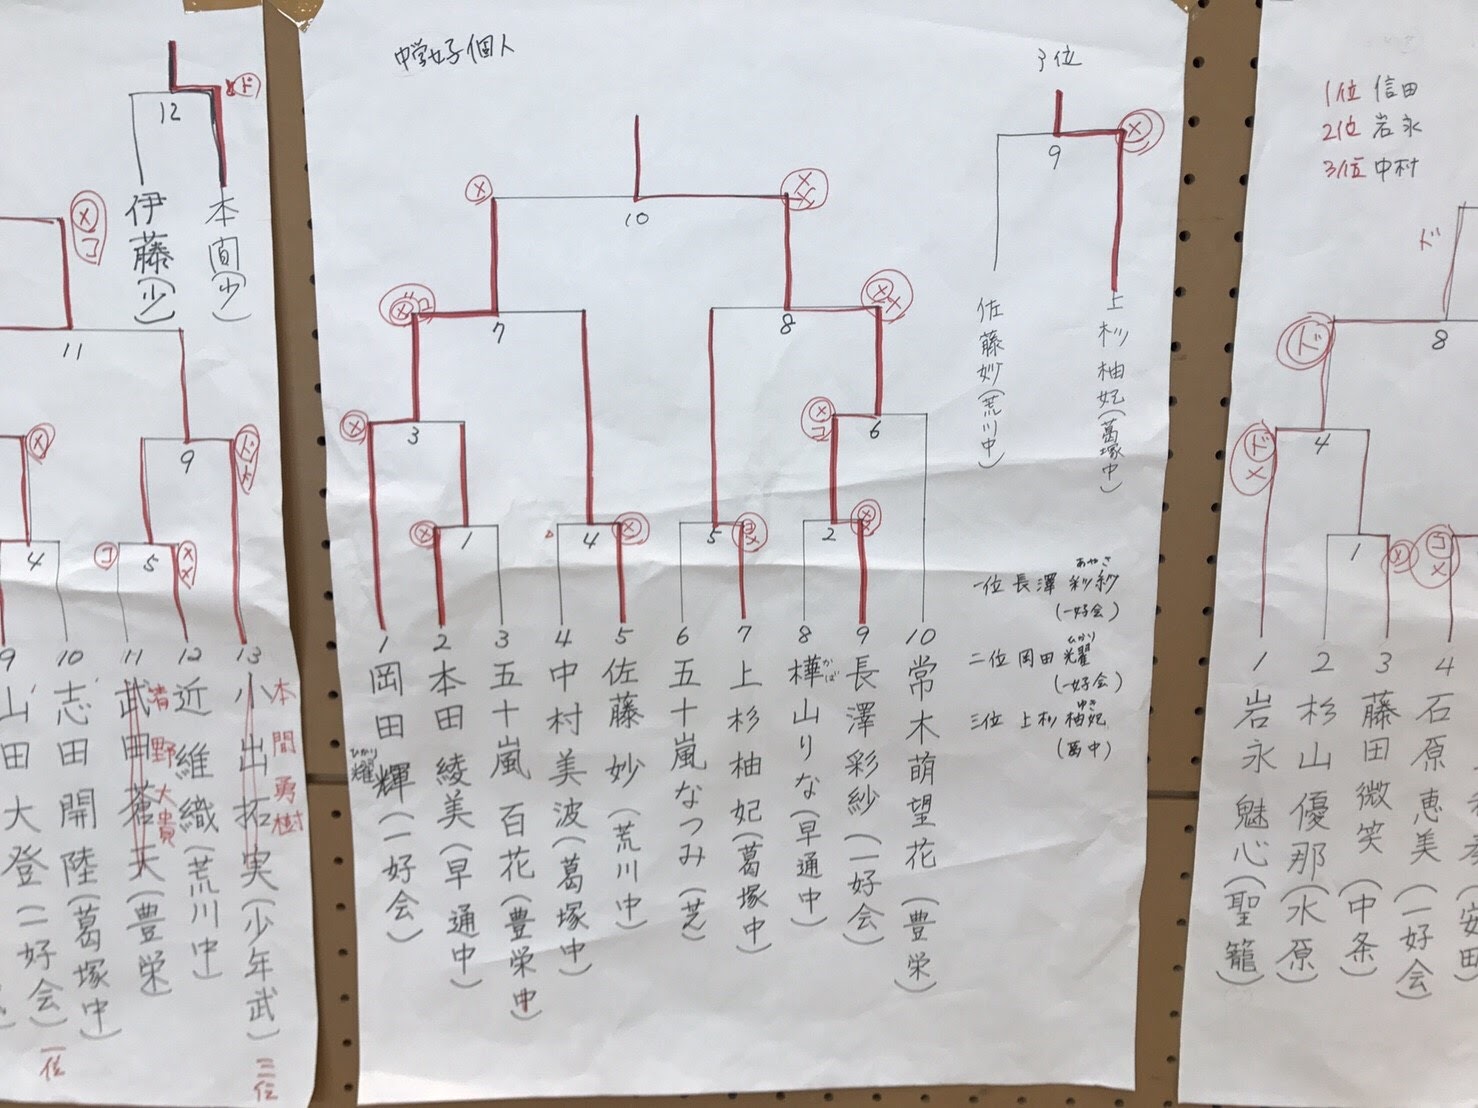 12
ド
伊藤(少)
本間(少)
メ
コ
11
メ
9
ド
メ
4
コ
5
メ
メ
9
10
11
12
13
山田大登(一好会)
志田開陸(葛塚中)
武田蒼天(豊栄)
清野大貴
近維織(荒川中)
小出拓実(少年武)
本間勇樹
一位
三位
中学女子個人
3位
メ
9
佐藤妙(荒川中)
上杉柚妃(葛塚中)
メ
メ
メ
10
メ
コ
7
8
メ
メ
メ
3
メ
コ
6
メ
1
4
メ
5
2
メ
1
2
3
4
5
6
7
8
9
10
岡田輝(一好会)
ひかり
耀
本田綾美(早通中)
五十嵐百花(豊栄中)
中村美波(葛塚中)
佐藤妙(荒川中)
五十嵐なつみ(芝)
上杉柚妃(葛塚中)
樺山りな(早通中)
かば
長澤彩紗(一好会)
常木萌望花(豊栄)
あやさ
一位 長澤 彩紗
(一好会)
ひかり
二位 岡田 耀
(一好会)
ゆき
三位 上杉 柚妃
(葛中)
1位 信田
2位 岩永
3位 中村
ド
ド
8
ド
メ
4
1
メ
コ
メ
1
2
3
4
岩永魅心(聖籠)
杉山優那(水原)
藤田微笑(中条)
石原恵美(一好会)
(安田